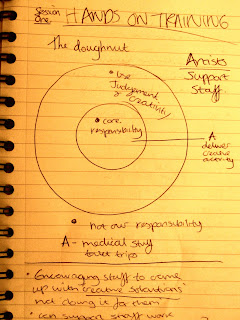 Session One HANDS ON TRAINING
The doughnut
Artists
Support
Staff.
• Use
Judgement
& Creativity
• core
responsibility
A
deliver
creative
activity
• not our responsibility
A - medical stuff
toilet trips
• Encouraging staff to come
up with creative solutions
not doing it for them
• can support staff work